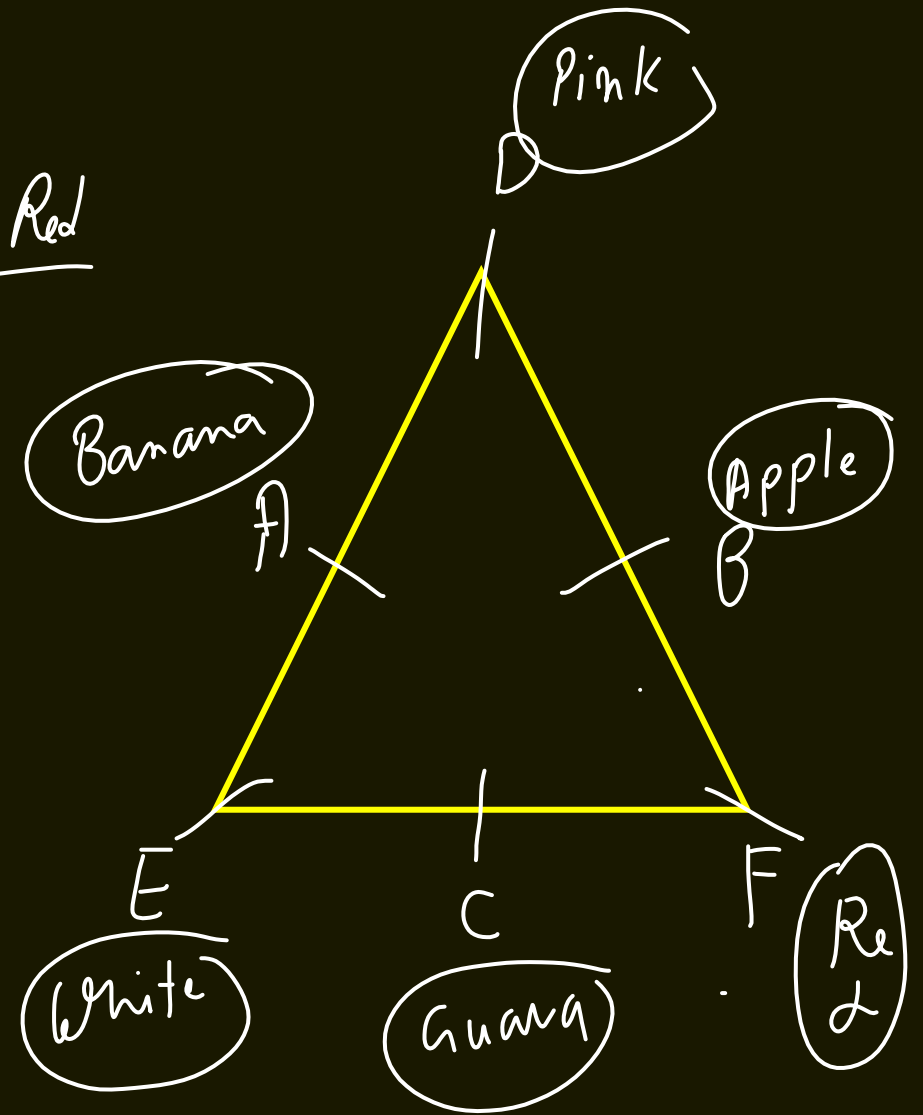 Pink
D
Red
Banana
A
Apple
B
E
C
F
White
Guava
Re
d